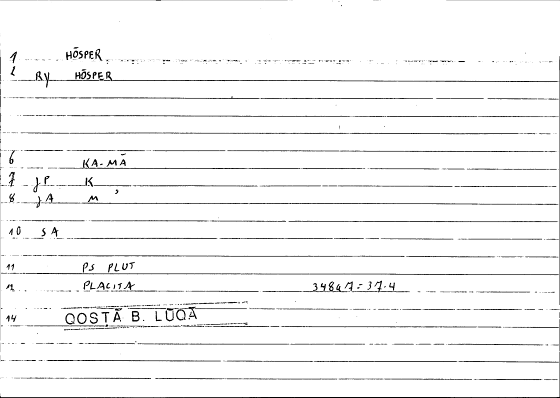 1 HŌSPER
2 RY HŌSPER
6 KA-MĀ
7 JP K
8 JA M ,
10 SA
11 PS PLUT
12 PLACITA
14 QOSṬĀ B. LŪQĀ